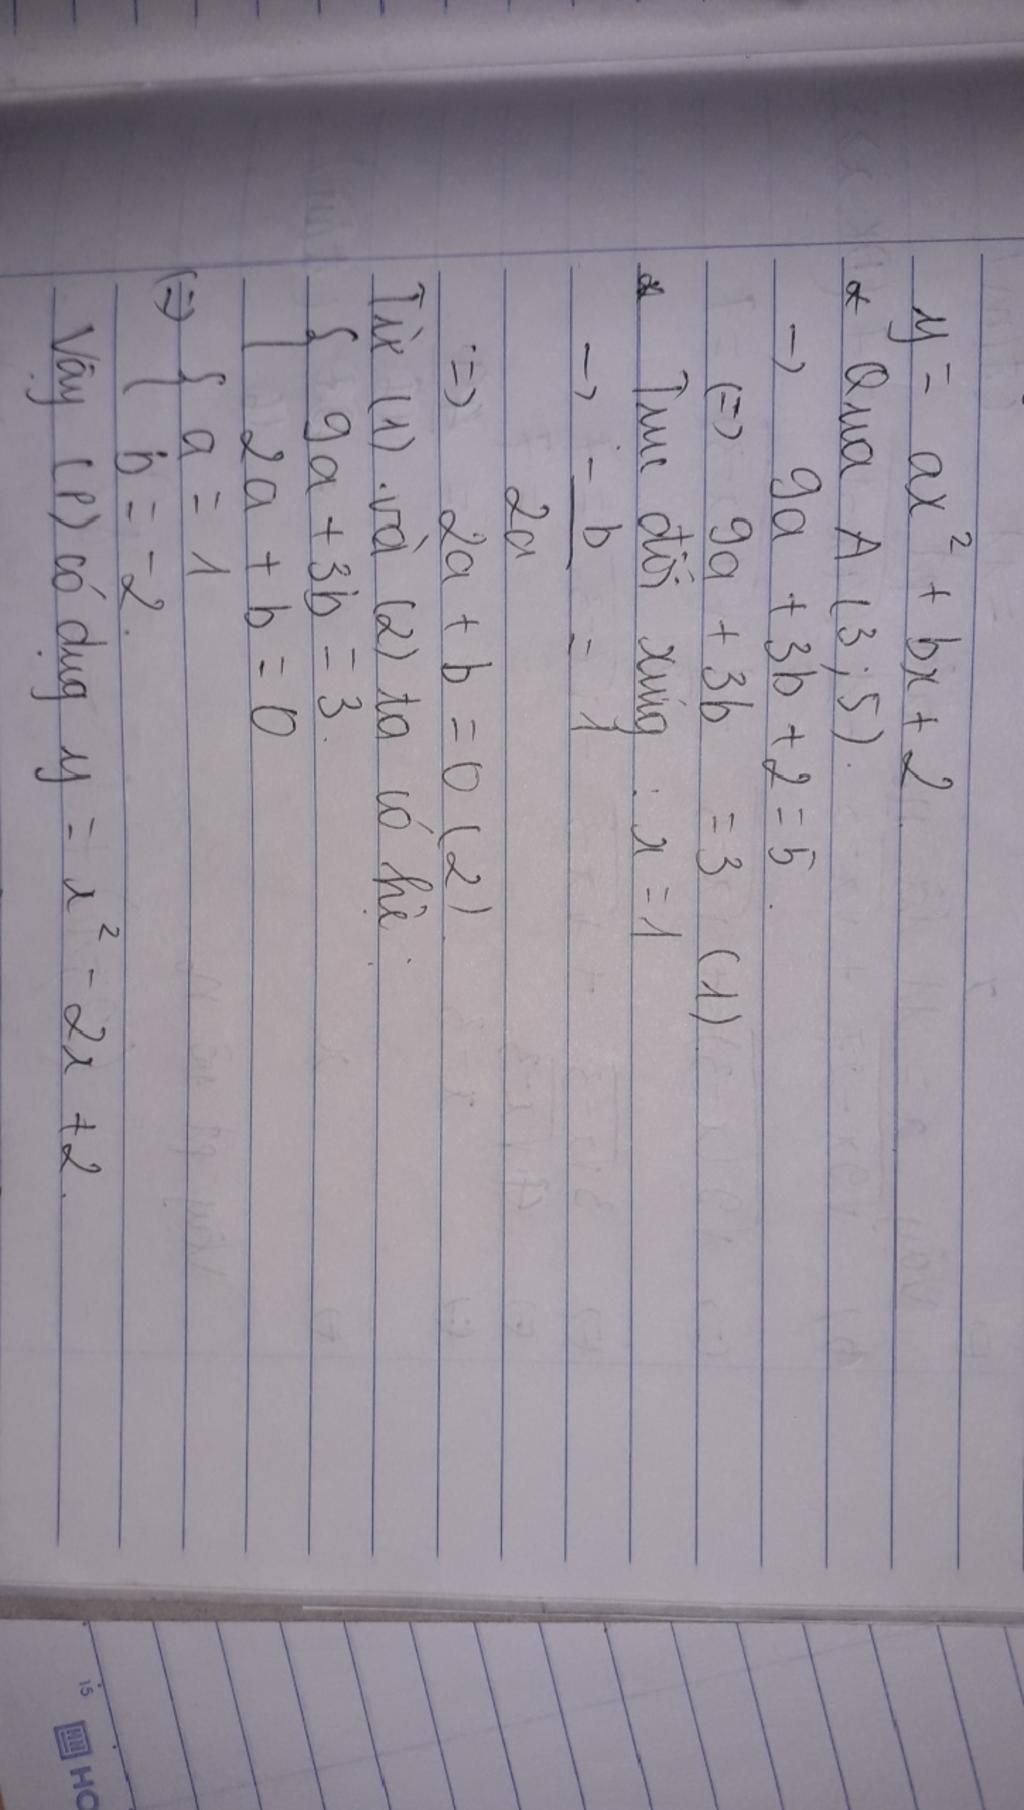 y = ax² + bx + 2
* Qua A (3; 5).
→ 9a + 3b + 2 = 5.
(=) 9a + 3b = 3 (1)
* Trục đối xứng : x = 1
→ -b/2a = 1
=> 2a + b = 0 (2)
Từ (1) và (2) ta có hệ:
{ 9a + 3b = 3.
2a + b = 0
(=) { a = 1
b = -2.
Vậy (P) có dạng y = x² - 2x + 2.
15
HO